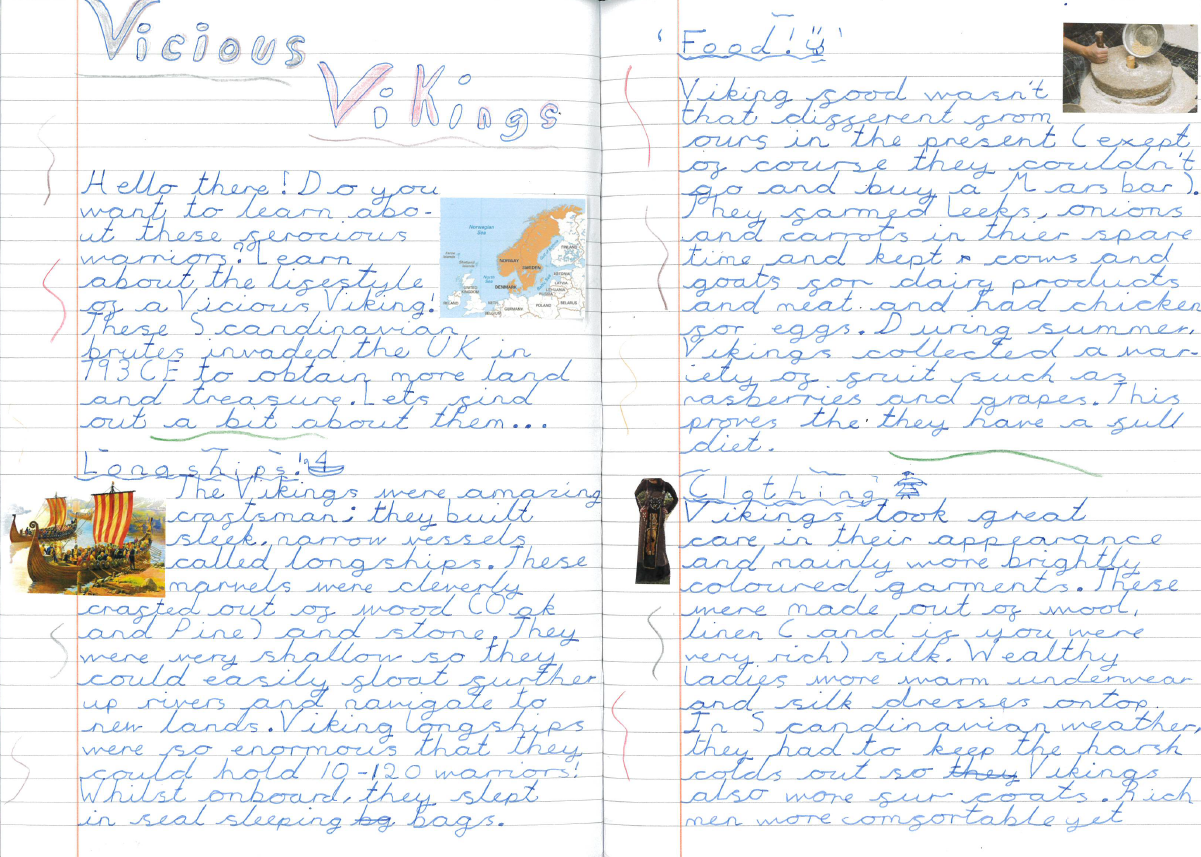 Vicious
Vikings
Hello there! Do you
want to learn abo-
ut these ferocious
warriors? Learn
about the lifestyle
of a Vicious Viking!
These Scandinavian
brutes invaded the UK in
793CE to obtain more land
and treasure. Lets find
out a bit about them...
Norwegian Sea
NORWAY
SWEDEN
FINLAND
ESTONIA
LATVIA
LITHUANIA
North Sea
DENMARK
UNITED KINGDOM
IRELAND
GERMANY
POLAND
BELARUS
Longships!
The Vikings were amazing
craftsman; they built
sleek, narrow vessels
called longships. These
marvels were cleverly
crafted out of wood (Oak
and Pine) and stone. They
were very shallow so they
could easily float further
up rivers and navigate to
new lands. Viking longships
were so enormous that they
could hold 10-120 warriors!
Whilst onboard, they slept
in seal sleeping bg bags.
'Food!'
Viking food wasn't
that different from
ours in the present (exept
of course they couldn't
go and buy a Mars bar).
They farmed leeks, onions
and carrots in thier spare
time and kept cows and
goats for dairy products
and meat and had chicken
for eggs. During summer,
Vikings collected a var-
iety of fruit such as
rasberries and grapes. This
proves the they have a full
diet.
Clothing
Vikings took great
care in their appearance
and mainly wore brightly
coloured garments. These
were made out of wool,
linen (and if you were
very rich) silk. Wealthy
ladies wore warm underwear
and silk dresses ontop.
In Scandinavian weather,
they had to keep the harsh
colds out so they Vikings
also wore fur coats. Rich
men wore comfortable yet